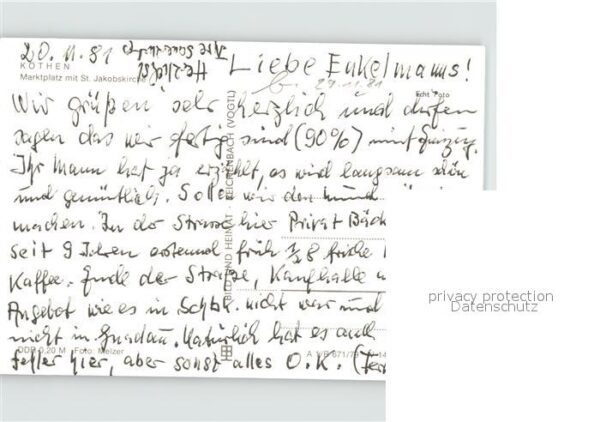 20.11.81
KÖTHEN
Marktplatz mit St. Jakobskirche
Herzlichst
Ihre
Liebe Enkelmanns!
29.11.81
Echt Foto
Wir grüßen sehr herzlich und dürfen
sagen das wir fertig sind (90%) mit
Ihr Mann hat ja erzählt, es wird langsam schön
und gemütlich. Sollte wir den
machen. In der Strasse hier Privat Bäck
seit 9 Jahren erstemal früh ½8 frische
Kaffee. Ende der Straße, Kaufhalle
Angebot wie es in nicht war und
nicht in Gnadau. Natürlich hat es auch
Fehler hier, aber sonst alles O.K. (
BILD UND HEIMAT REICHENBACH (VOGTL)
DDR 0,20 M Foto: Melzer
A 1/B 671/79
privacy protection
Datenschutz